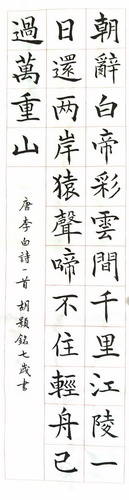 朝辭白帝彩雲間千里江陵一
日還两岸猿聲啼不住輕舟已
過萬重山
唐李白詩一首 胡顥銘七歲書